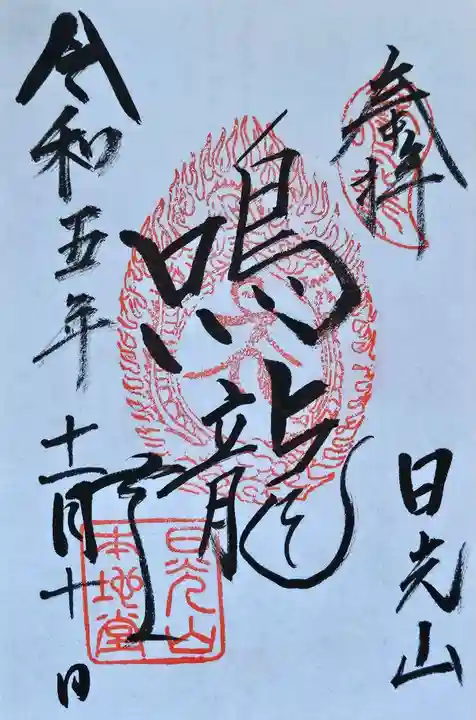 奉拝
日光山
鳴龍
令和五年十一月十日
日光山
本地堂